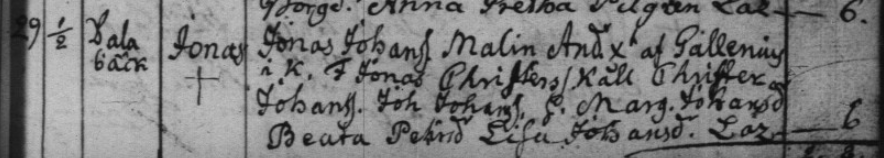 Börge. Anna Gretha Laz 6.
29 1/2 Dala Jonas Jonas Johanss Malin Andx af Gallenius
bäck i K. F Jonas Christers/ Käll Christer
Johanss. Joh Johanss, P. Marg. Johansd
Beata Petersd Lisa Johansd. Laz 6